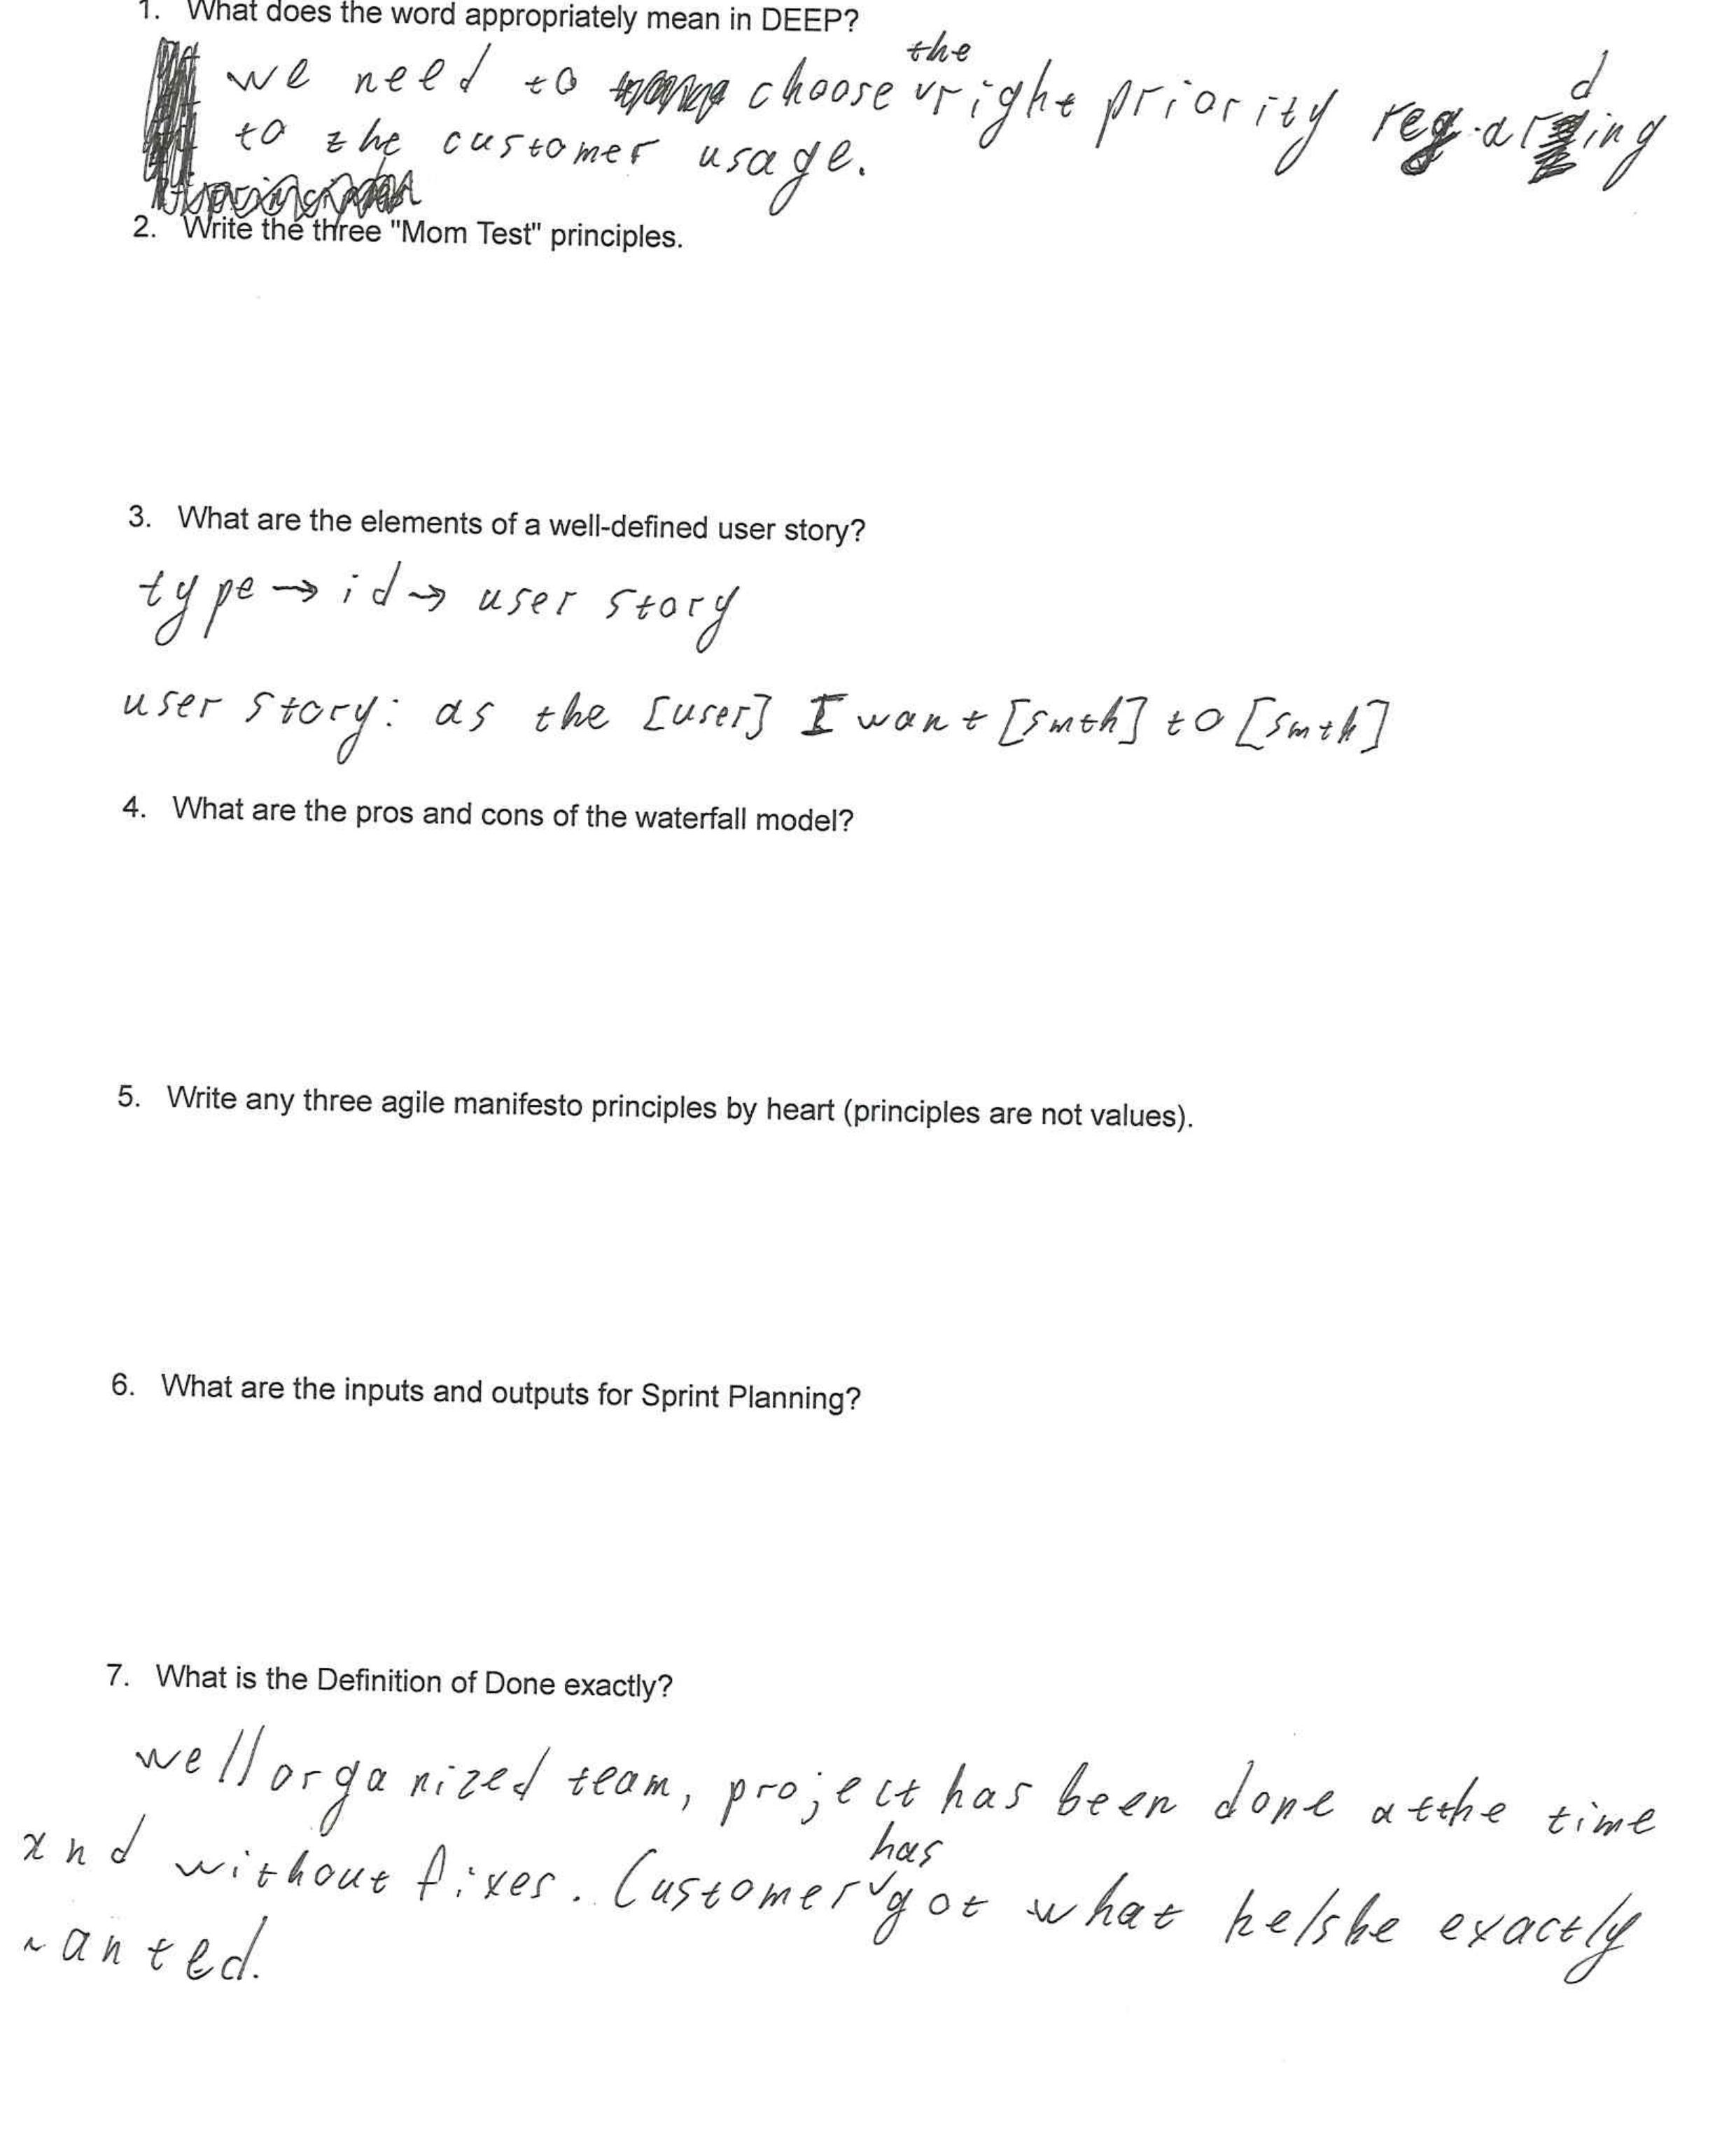 1. What does the word appropriately mean in DEEP?
the
we need to choose right priority regarding
to the customer usage.
2. Write the three "Mom Test" principles.
3. What are the elements of a well-defined user story?
type → id → user story
user story: as the [user] I want [smth] to [smth]
4. What are the pros and cons of the waterfall model?
5. Write any three agile manifesto principles by heart (principles are not values).
6. What are the inputs and outputs for Sprint Planning?
7. What is the Definition of Done exactly?
well organized team, project has been done at the time
and without fixes. Customer has got what he/she exactly
wanted.